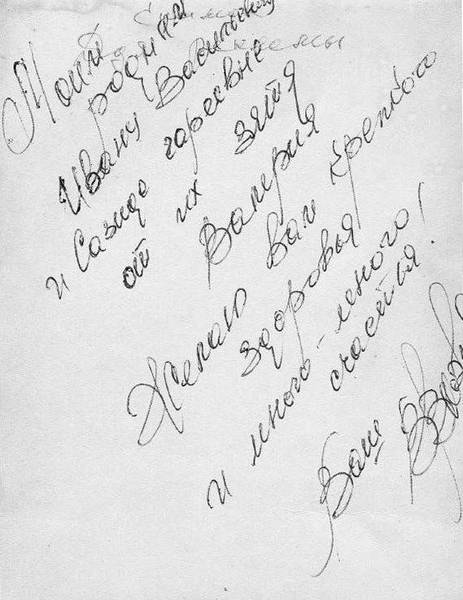 Моим
родным
Ивану Васильевичу
и Сазиде Гареевне
от их зятя
Валерия
Желаю вам крепкого
здоровья
и много-много
счастья!
Ваш